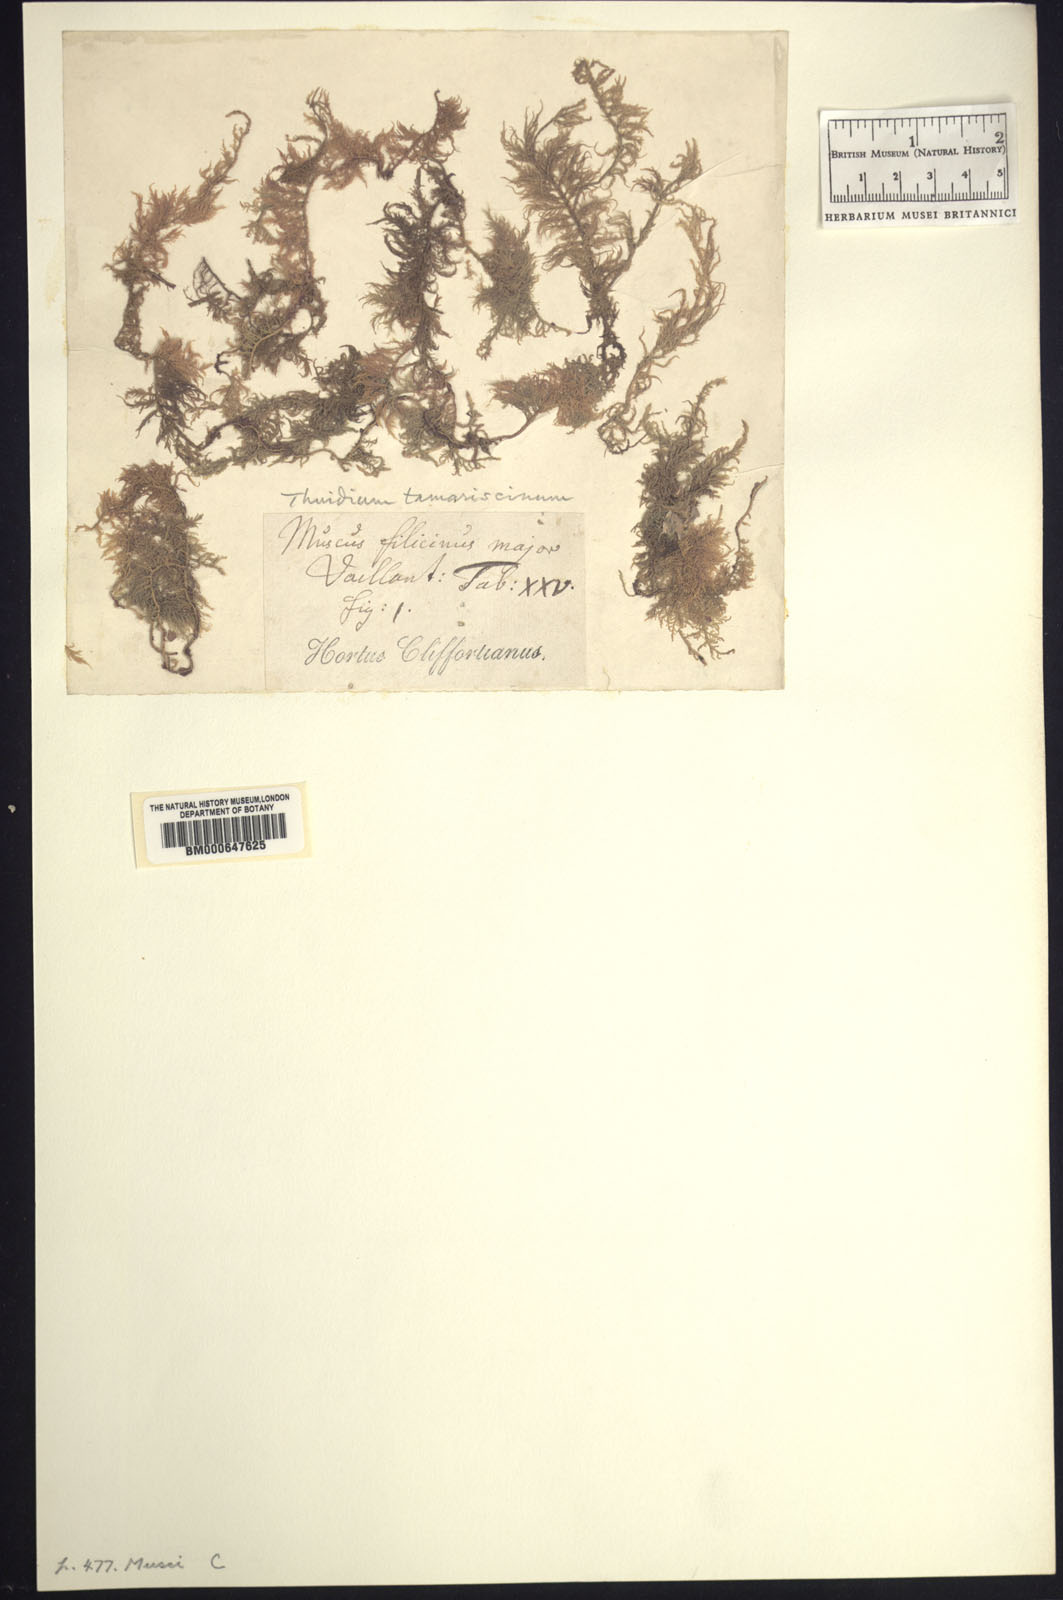 1 2
BRITISH MUSEUM (NATURAL HISTORY)
1 2 3 4 5
HERBARIUM MUSEI BRITANNICI
Thuidium tamariscinum
Muscus filicinus major
Vaillant: Tab: XXV.
fig: 1.
Hortus Cliffortianus.
THE NATURAL HISTORY MUSEUM, LONDON
DEPARTMENT OF BOTANY
BM000647625
p. 477. Musci C